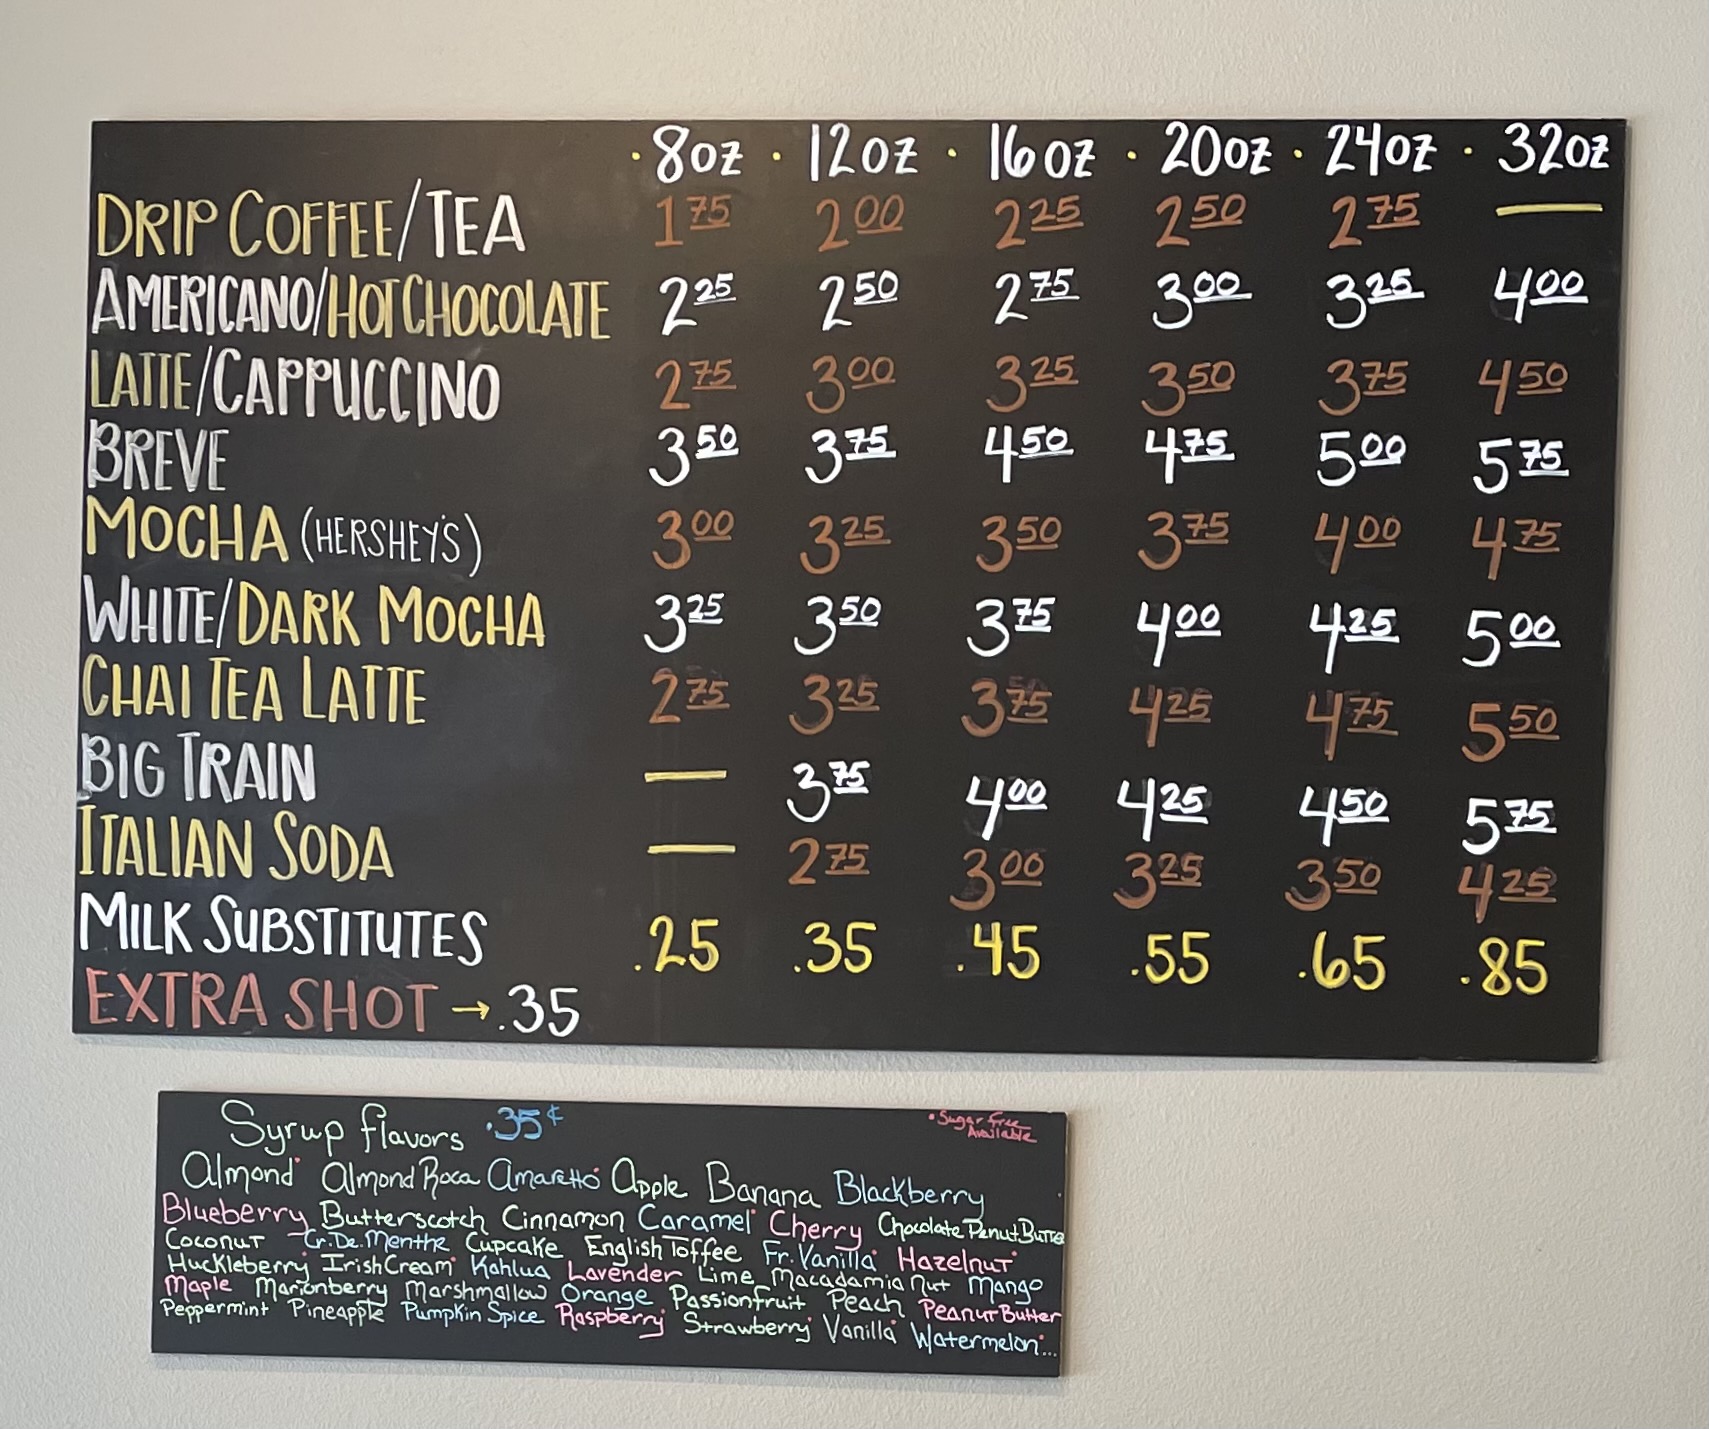 · 8oz · 12oz · 16oz · 20oz · 24oz · 32oz
DRIP COFFEE/TEA 1 75 2 00 2 25 2 50 2 75 —
AMERICANO/HOT CHOCOLATE 2 25 2 50 2 75 3 00 3 25 4 00
LATTE/CAPPUCCINO 2 75 3 00 3 25 3 50 3 75 4 50
BREVE 3 50 3 75 4 50 4 75 5 00 5 75
MOCHA (HERSHEY'S) 3 00 3 25 3 50 3 75 4 00 4 75
WHITE/DARK MOCHA 3 25 3 50 3 75 4 00 4 25 5 00
CHAI TEA LATTE 2 75 3 25 3 75 4 25 4 75 5 50
BIG TRAIN — 3 75 4 00 4 25 4 50 5 75
ITALIAN SODA — 2 75 3 00 3 25 3 50 4 25
MILK SUBSTITUTES .25 .35 .45 .55 .65 .85
EXTRA SHOT → .35
Syrup flavors .35¢ • Sugar Free
Available
Almond• Almond Roca Amaretto• Apple Banana Blackberry
Blueberry Butterscotch Cinnamon Caramel• Cherry Chocolate Penut Butter
Coconut Cr. De. Menthe Cupcake English Toffee Fr. Vanilla• Hazelnut•
Huckleberry Irish Cream• Kahlua Lavender Lime Macadamia Nut Mango
Maple Marionberry Marshmallow Orange Passionfruit Peach Peanut Butter
Peppermint Pineapple Pumpkin Spice Raspberry• Strawberry• Vanilla• Watermelon•...